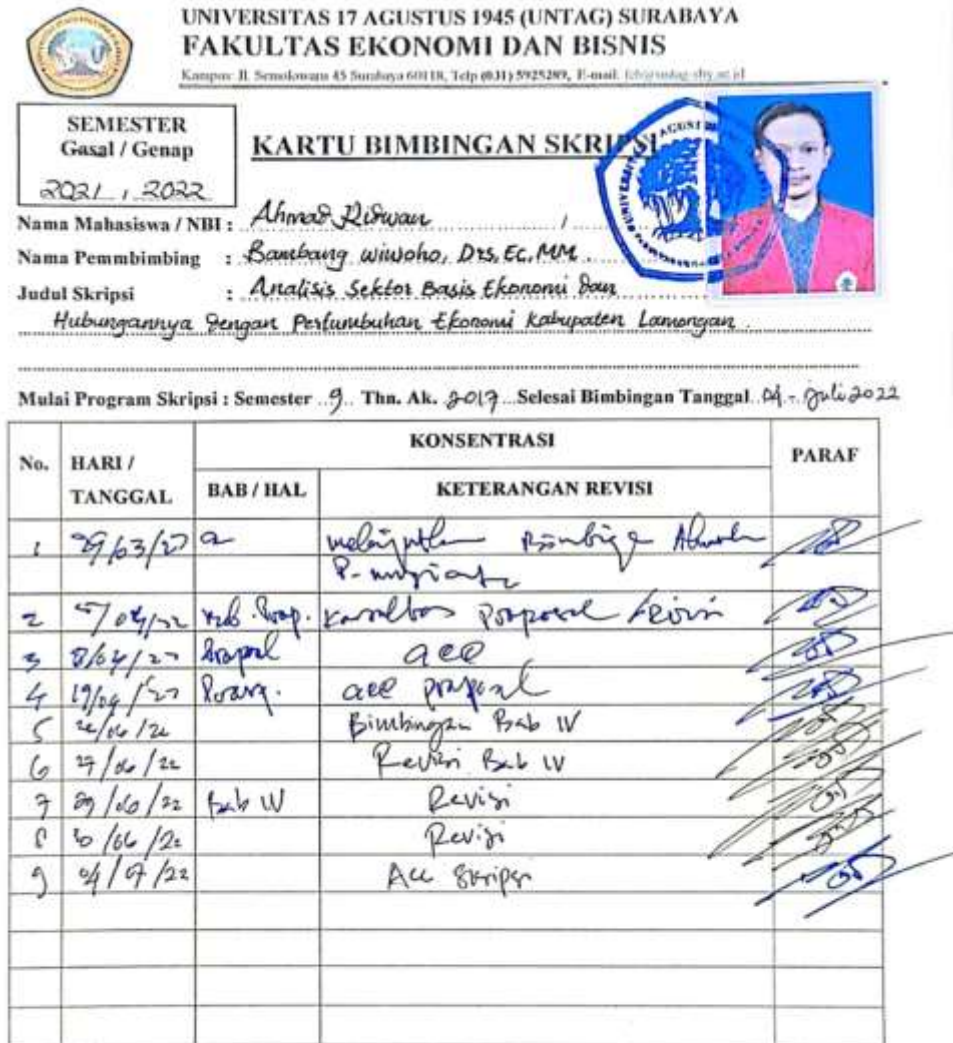 UNIVERSITAS 17 AGUSTUS 1945 (UNTAG) SURABAYA
FAKULTAS EKONOMI DAN BISNIS
Kampus: Jl. Semolowaru 45 Surabaya 60118, Telp (031) 5925289, E-mail: feb@untag-sby.ac.id
SEMESTER
Gasal / Genap
2021 / 2022
KARTU BIMBINGAN SKRIPSI
Nama Mahasiswa / NBI : Ahmad Ridwan /
Nama Pemmbimbing : Bambang Wiwoho, Drs, Ec, MM.
Judul Skripsi : Analisis Sektor Basis Ekonomi dan
Hubungannya dengan Pertumbuhan Ekonomi Kabupaten Lamongan.
Mulai Program Skripsi : Semester 9 Thn. Ak. 2017 Selesai Bimbingan Tanggal 04 - Juli 2022
No. HARI / TANGGAL KONSENTRASI PARAF
BAB / HAL KETERANGAN REVISI
1 29/03/22
2 proposal revisi
3 8/04/22 acc
4 19/04/22 acc proposal
5 Bimbingan Bab IV
6 27/06/22 Revisi Bab IV
7 29/06/22 Bab IV Revisi
8 30/06/22 Revisi
9 04/07/22 Acc Skripsi